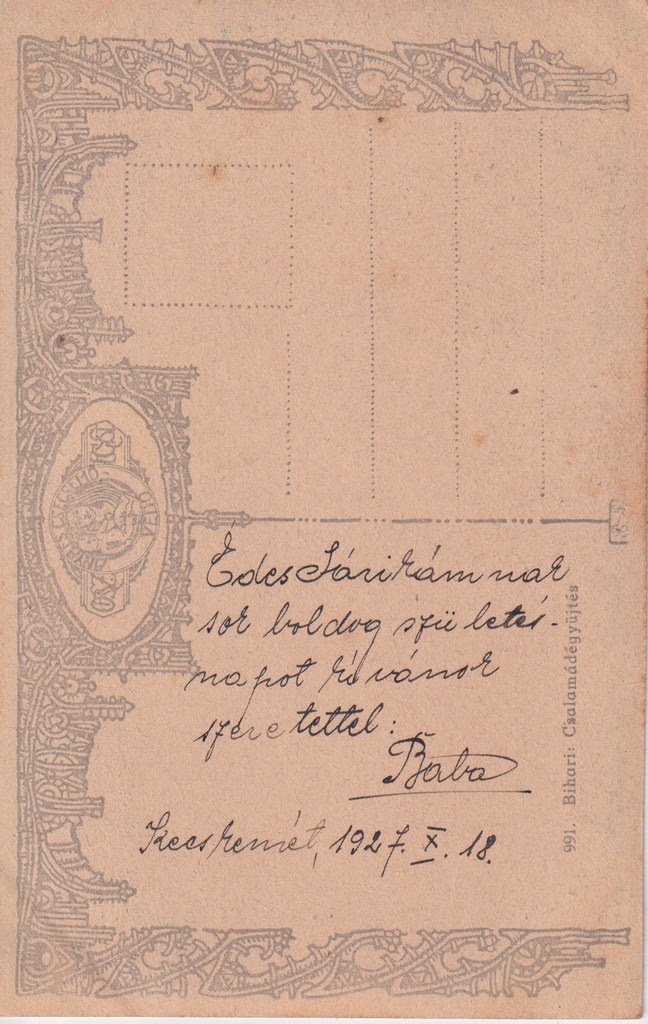 Édes Sárikám nak
sok boldog születés-
napot kivánok
szeretettel:
Baba
Kecskemét, 1927. X. 18.
991. Bihari: Csalamádégyüjtés